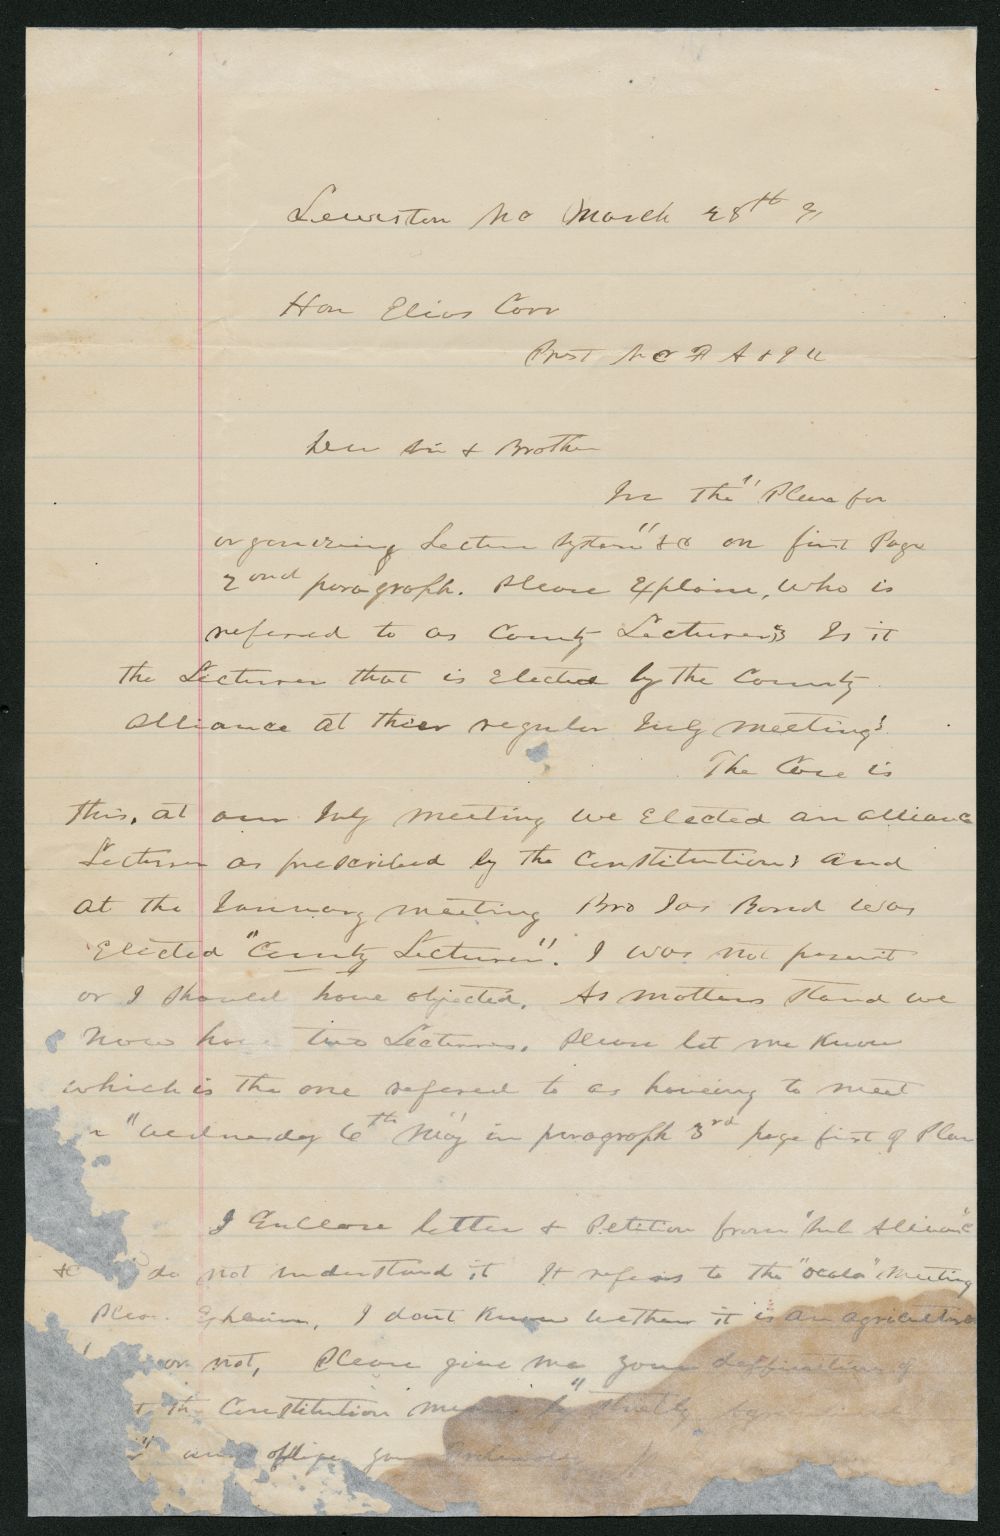 Lewiston NC March 28th 91
Hon Elias Carr
Prest N C F A & I U
Dear Sir & Brother
In the "Plan for
organizing Lecture System" &c on first Page
2ond paragraph. Please Explain, who is
referred to as County Lecturer? Is it
the Lecturer that is Elected by the County
Alliance at thier regular July meeting?
The Case is
this, at our July meeting we Elected an Alliance
Lecturer as prescribed by the Constitution; and
at the January meeting Bro Jas Bond was
Elected "County Lecturer". I was not present
or I should have objected. As matters stand we
Now have two Lecturers. Please let me Know
which is the one refered to as haveing to meet
"Wednesday 6th May" in paragraph 3rd page first of Plan
I Enclose letter & Petition from "Nat Alliance"
&c do not understand it It refers to the "Ocala" Meeting
Please Explain, I dont Know wether it is an agricultural
or not, Please give me your deffinition of
the Constitution means by "strictly
and oblige yours